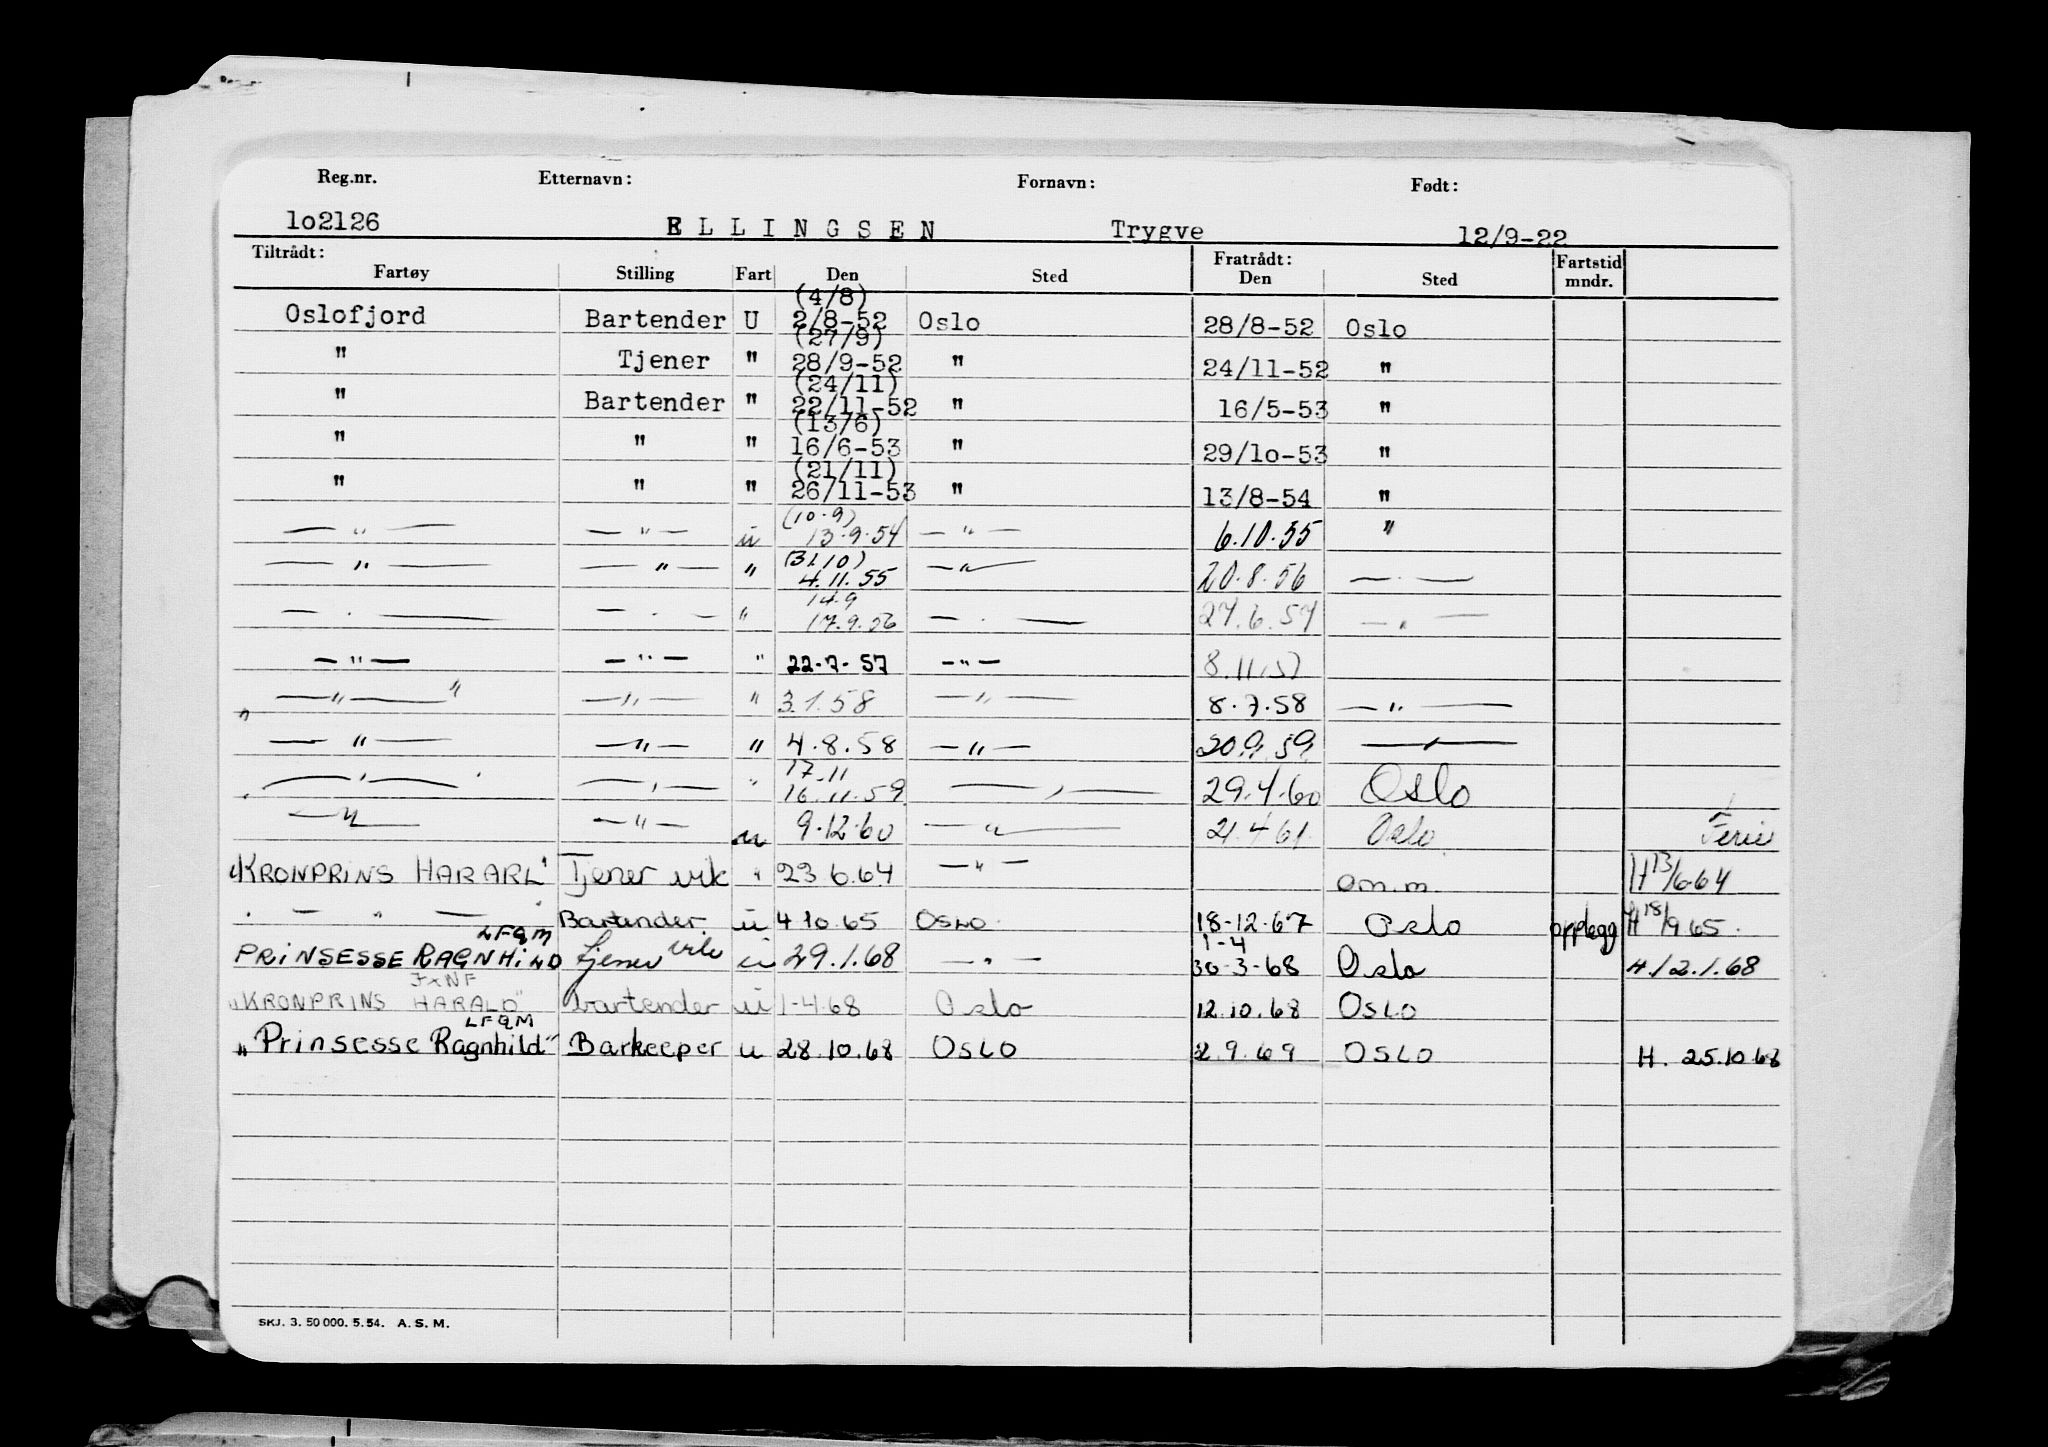 Reg.nr. Etternavn: Fornavn: Født:
1o2126 ELLINGSEN Trygve 12/9-22
Tiltrådt: Fratrådt: Fartstid
Fartøy Stilling Fart Den Sted Den Sted mndr.
(4/8)
Oslofjord Bartender U 2/8-52 Oslo 28/8-52 Oslo
(27/9)
" Tjener " 28/9-52 " 24/11-52 "
(24/11)
" Bartender " 22/11-52 " 16/5-53 "
(13/6)
" " " 16/6-53 " 29/1o-53 "
(21/11)
" " " 26/11-53 " 13/8-54 "
(10.9)
— " — — " — u 13.9.54 — " — 6.10.55 "
(31.10)
— " — — " — " 4.11.55 — " — 20.8.56 — . —
14.9
— . — — . — " 17.9.56 — . — 27.6.57 — " —
— " — — " — " 22-7-57 — " — 8.11.57
" — " — " — " — " 3.1.58 — " — 8.7.58 — " —
— " — — " — " 4.8.58 — " — 20.9.59 — " —
17.11
" — " — — " — " 16.11.59 — " — 29.4.60 Oslo
— " — — " — u 9.12.60 — " — 21.4.61 Oslo Ferie
"KRONPRINS HARARL" Tjener vik " 23 6.64 — " — am.m. H 13/6.64
" — " — " Bartender. u 4 10.65 OSLO. 18-12.67 Oslo opplegg H 18/9 65.
LFQM 1-4
PRINSESSE RAGNHILD Tjener vik u 29.1.68 — " — 30-3-68 Oslo H./2.1.68
JXNF
"KRONPRINS HARALD" bartender u 1-4.68 Oslo 12.10.68 OSLO
LFQM
"Prinsesse Ragnhild" Barkeeper u 28.10.68 OSLO 2.9.69 OSLO H. 25.10.68
SKJ. 3. 50 000. 5. 54. A. S. M.